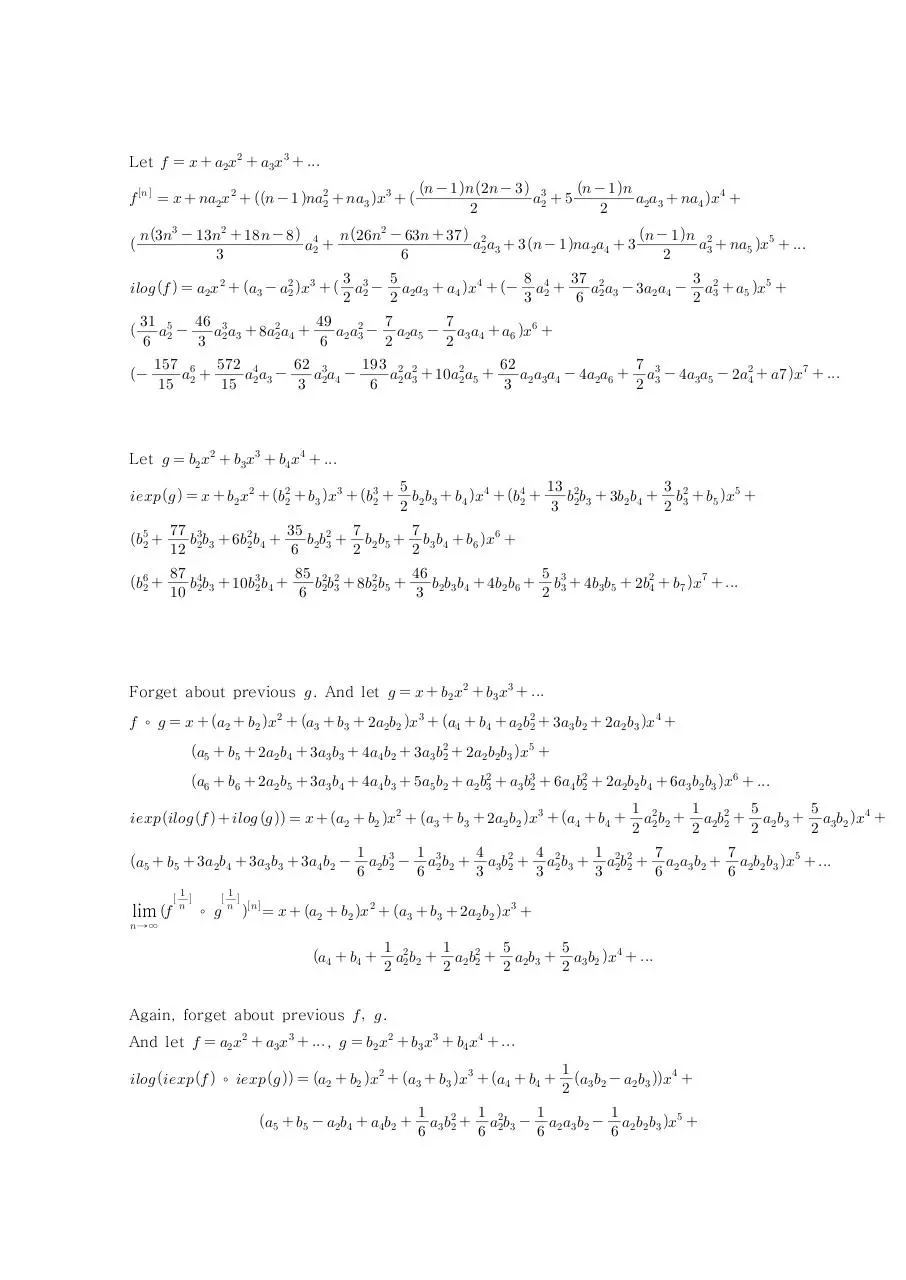 Let f = x + a₂x² + a₃x³ + ...
f^[n] = x + na₂x² + ((n−1)na₂² + na₃)x³ + (\frac{(n−1)n(2n−3)}{2}a₂³ + 5\frac{(n−1)n}{2}a₂a₃ + na₄)x⁴ +
(\frac{n(3n³−13n²+18n−8)}{3}a₂⁴ + \frac{n(26n²−63n+37)}{6}a₂²a₃ + 3(n−1)na₂a₄ + 3\frac{(n−1)n}{2}a₃² + na₅)x⁵ + ...
ilog(f) = a₂x² + (a₃ − a₂²)x³ + (\frac{3}{2}a₂³ − \frac{5}{2}a₂a₃ + a₄)x⁴ + (−\frac{8}{3}a₂⁴ + \frac{37}{6}a₂²a₃ − 3a₂a₄ − \frac{3}{2}a₃² + a₅)x⁵ +
(\frac{31}{6}a₂⁵ − \frac{46}{3}a₂³a₃ + 8a₂²a₄ + \frac{49}{6}a₂a₃² − \frac{7}{2}a₂a₅ − \frac{7}{2}a₃a₄ + a₆)x⁶ +
(−\frac{157}{15}a₂⁶ + \frac{572}{15}a₂⁴a₃ − \frac{62}{3}a₂³a₄ − \frac{193}{6}a₂²a₃² + 10a₂²a₅ + \frac{62}{3}a₂a₃a₄ − 4a₂a₆ + \frac{7}{2}a₃³ − 4a₃a₅ − 2a₄² + a7)x⁷ + ...
Let g = b₂x² + b₃x³ + b₄x⁴ + ...
iexp(g) = x + b₂x² + (b₂² + b₃)x³ + (b₂³ + \frac{5}{2}b₂b₃ + b₄)x⁴ + (b₂⁴ + \frac{13}{3}b₂²b₃ + 3b₂b₄ + \frac{3}{2}b₃² + b₅)x⁵ +
(b₂⁵ + \frac{77}{12}b₂³b₃ + 6b₂²b₄ + \frac{35}{6}b₂b₃² + \frac{7}{2}b₂b₅ + \frac{7}{2}b₃b₄ + b₆)x⁶ +
(b₂⁶ + \frac{87}{10}b₂⁴b₃ + 10b₂³b₄ + \frac{85}{6}b₂²b₃² + 8b₂²b₅ + \frac{46}{3}b₂b₃b₄ + 4b₂b₆ + \frac{5}{2}b₃³ + 4b₃b₅ + 2b₄² + b₇)x⁷ + ...
Forget about previous g. And let g = x + b₂x² + b₃x³ + ...
f ∘ g = x + (a₂ + b₂)x² + (a₃ + b₃ + 2a₂b₂)x³ + (a₄ + b₄ + a₂b₂² + 3a₃b₂ + 2a₂b₃)x⁴ +
(a₅ + b₅ + 2a₂b₄ + 3a₃b₃ + 4a₄b₂ + 3a₃b₂² + 2a₂b₂b₃)x⁵ +
(a₆ + b₆ + 2a₂b₅ + 3a₃b₄ + 4a₄b₃ + 5a₅b₂ + a₂b₃² + a₃b₂³ + 6a₄b₂² + 2a₂b₂b₄ + 6a₃b₂b₃)x⁶ + ...
iexp(ilog(f) + ilog(g)) = x + (a₂ + b₂)x² + (a₃ + b₃ + 2a₂b₂)x³ + (a₄ + b₄ + \frac{1}{2}a₂²b₂ + \frac{1}{2}a₂b₂² + \frac{5}{2}a₂b₃ + \frac{5}{2}a₃b₂)x⁴ +
(a₅ + b₅ + 3a₂b₄ + 3a₃b₃ + 3a₄b₂ − \frac{1}{6}a₂b₂³ − \frac{1}{6}a₂³b₂ + \frac{4}{3}a₃b₂² + \frac{4}{3}a₂²b₃ + \frac{1}{3}a₂²b₂² + \frac{7}{6}a₂a₃b₂ + \frac{7}{6}a₂b₂b₃)x⁵ + ...
\lim_{n→∞}(f^{[\frac{1}{n}]} ∘ g^{[\frac{1}{n}]})^{[n]} = x + (a₂ + b₂)x² + (a₃ + b₃ + 2a₂b₂)x³ +
(a₄ + b₄ + \frac{1}{2}a₂²b₂ + \frac{1}{2}a₂b₂² + \frac{5}{2}a₂b₃ + \frac{5}{2}a₃b₂)x⁴ + ...
Again, forget about previous f, g.
And let f = a₂x² + a₃x³ + ... , g = b₂x² + b₃x³ + b₄x⁴ + ...
ilog(iexp(f) ∘ iexp(g)) = (a₂ + b₂)x² + (a₃ + b₃)x³ + (a₄ + b₄ + \frac{1}{2}(a₃b₂ − a₂b₃))x⁴ +
(a₅ + b₅ − a₂b₄ + a₄b₂ + \frac{1}{6}a₃b₂² + \frac{1}{6}a₂²b₃ − \frac{1}{6}a₂a₃b₂ − \frac{1}{6}a₂b₂b₃)x⁵ +